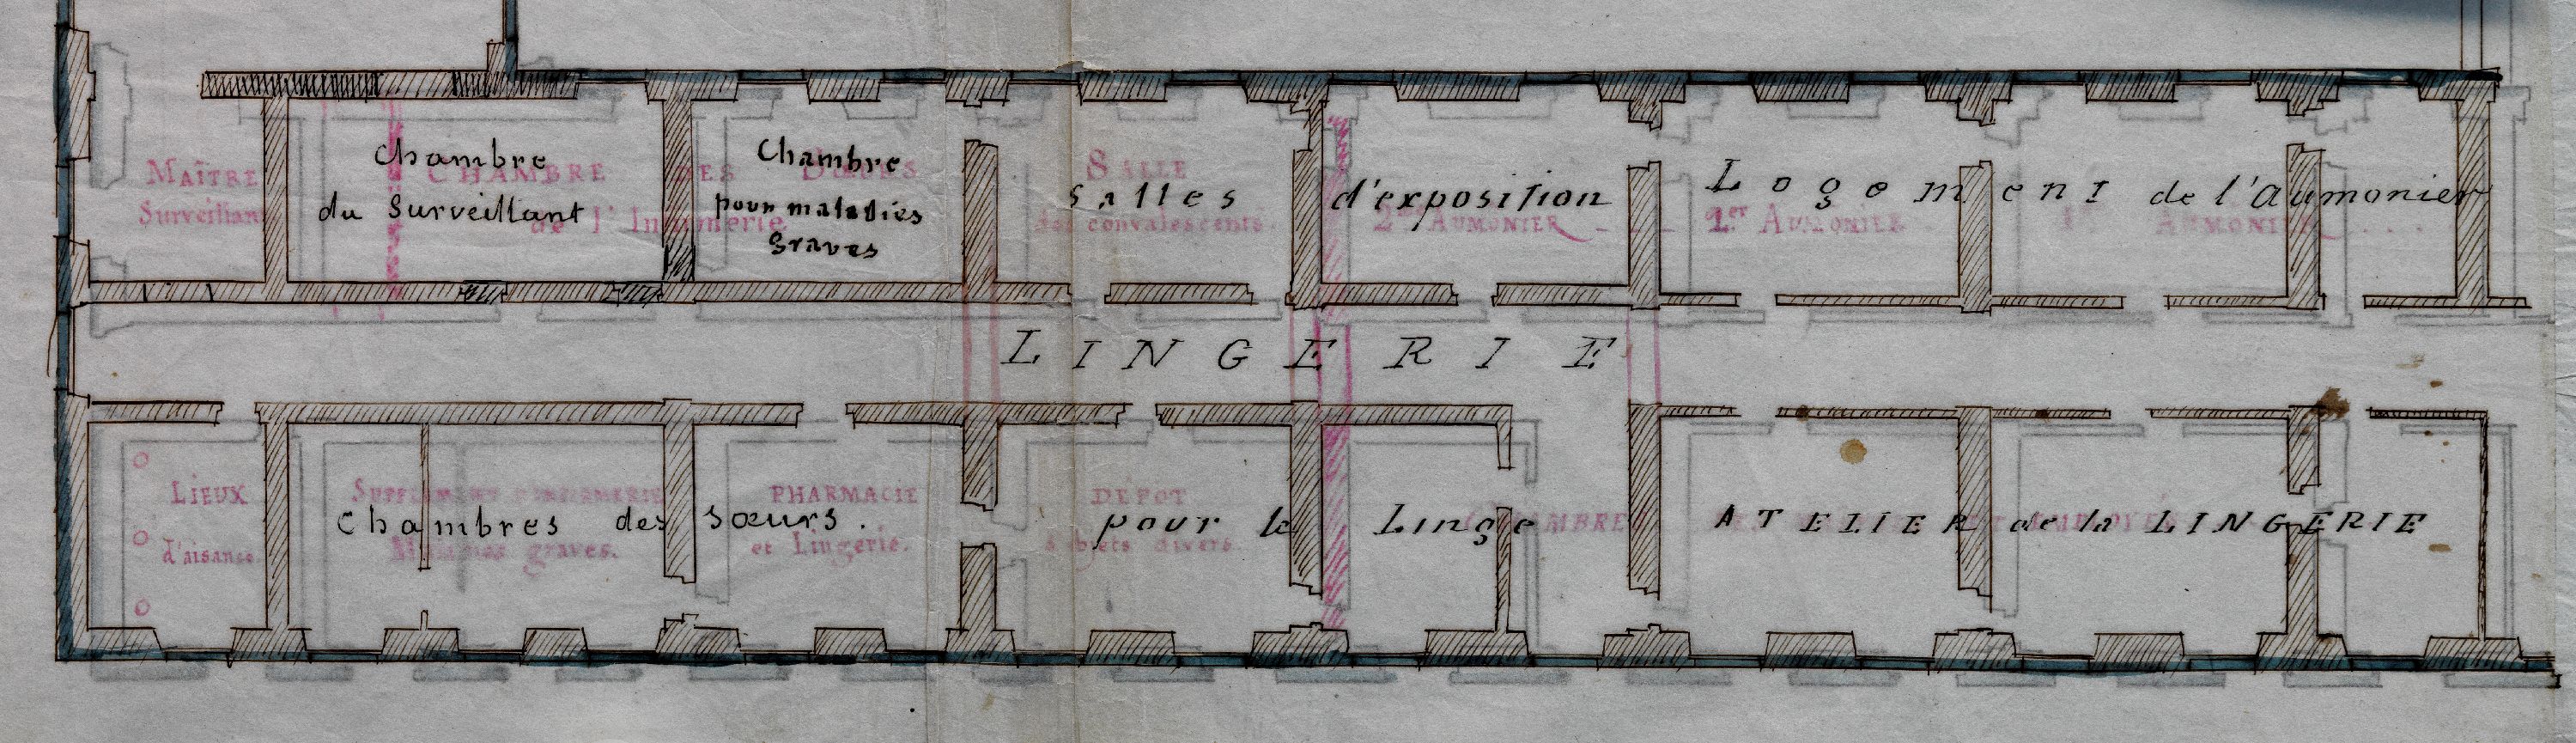 Chambre
du Surveillant
Chambre
pour maladies
graves
Salles d'exposition
Logement de l'Aumonier
MAÎTRE
Surveillant
CHAMBRE DES Sœurs
de l'Infirmerie
SALLE
des convalescents.
2me AUMONIER
1er AUMONIER
AUMONIER
LINGERIE
Chambres des sœurs.
pour le Linge
ATELIER de la LINGERIE
LIEUX
d'aisance.
SUPPLÉMENT D'INFIRMERIE
Malades graves.
PHARMACIE
et Lingerie.
DÉPOT
objets divers.
CHAMBRE